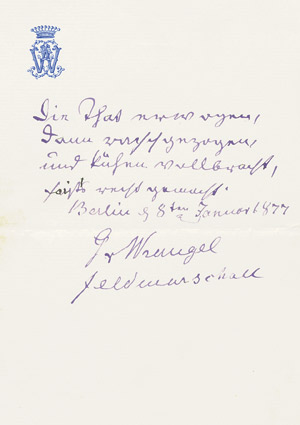 W
Die That erwogen,
Dann rasch gezogen,
und kühn vollbracht,
recht gemacht.
Berlin d 8ten Januar 1877
Gr Wrangel
Feldmarschall